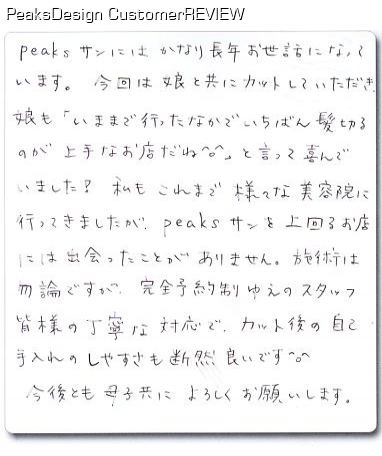 PeaksDesign CustomerREVIEW
peaksサンにはかなり長年お世話になって
います。 今回は娘と共にカットしていただき、
娘も「いままで行ったなかでいちばん髪切る
のが上手なお店だね^o^」と言って喜んで
いました? 私もこれまで様々な美容院に
行ってきましたが、peaksサンを上回るお店
には出会ったことがありません。施術は
勿論ですが、完全予約制ゆえのスタッフ
皆様の丁寧な対応で、カット後の自己
手入れのしやすさも断然良いです^o^
今後とも母子共によろしくお願いします。